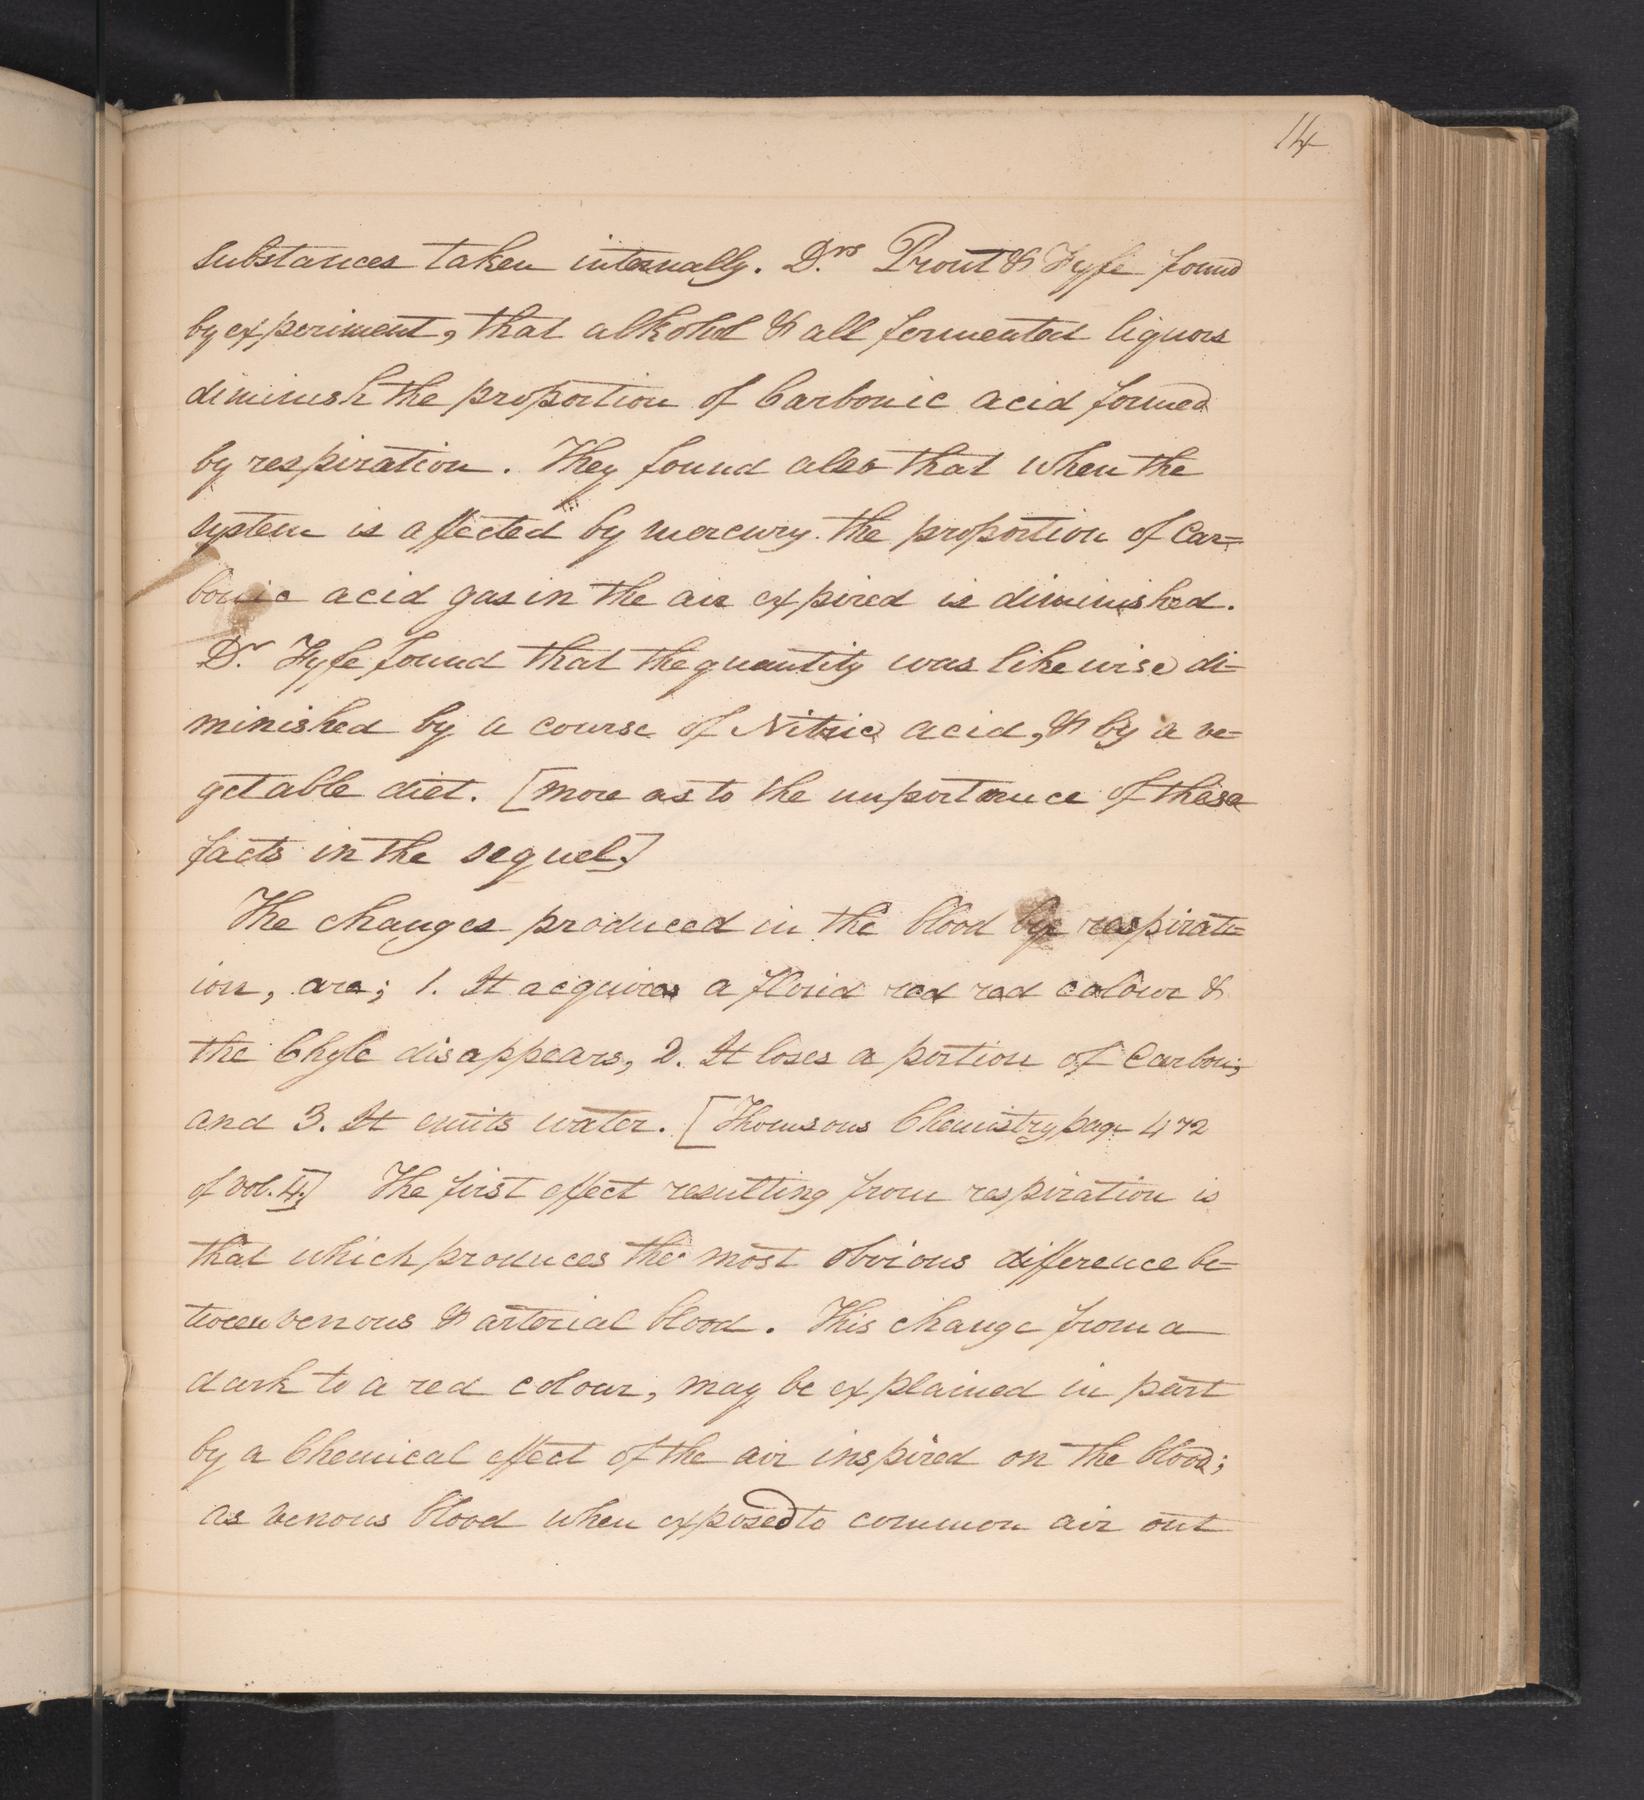 14
substances taken internally. Drs Prout & Fyfe found
by experiment, that alkohol & all fermented liquors
diminish the proportion of Carbonic acid formed
by respiration. They found also that when the
system is affected by mercury the proportion of Car=
bonic acid gas in the air expired is diminished.
Dr. Fyfe found that the quantity was likewise di=
minished by a course of Nitric acid, & by a ve=
getable diet. [more as to the importance of these
facts in the sequel.]
The changes produced in the blood by respirat=
ion, are; 1. It acquires a florid red red colour &
the Chyle disappears, 2. It loses a portion of Carbon;
and 3. It emits water. [Thomsons Chemistry page 472
of vol. 4.] The first effect resulting from respiration is
that which produces the most obvious difference be=
tween venous & arterial blood. This change from a
dark to a red colour, may be explained in part
by a Chemical effect of the air inspired on the blood;
as venous blood when exposed to common air out